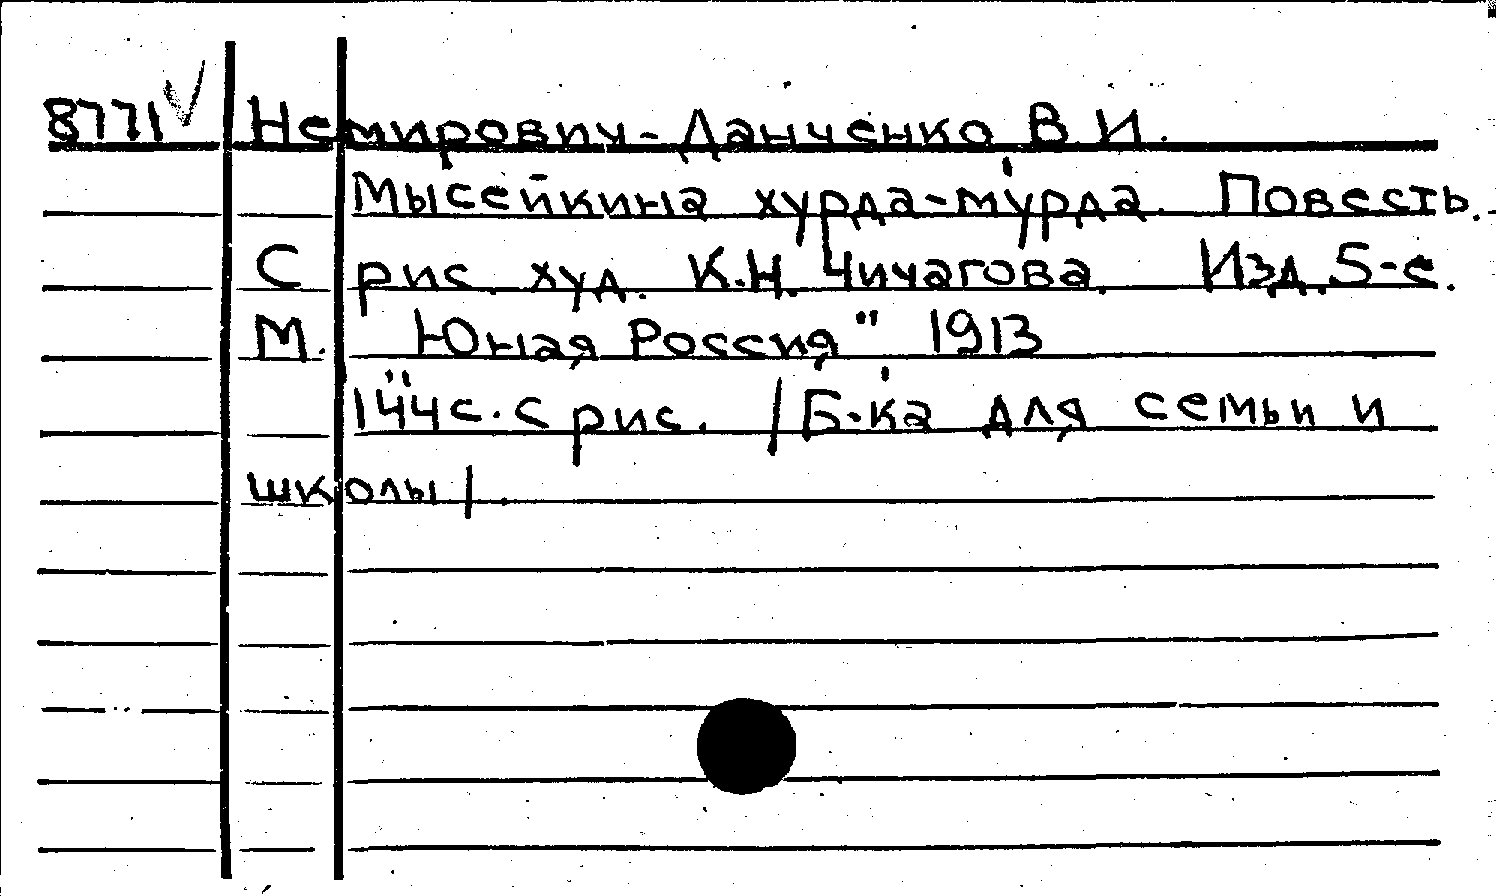 8771 Немирович-Данченко В.И.
Мысейкина хурда-мурда. Повесть.
С рис. худ. К.Н. Чичагова. Изд. 5-е.
М. Юная Россия" 1913
144с. с рис. /Б-ка для семьи и
школы/.